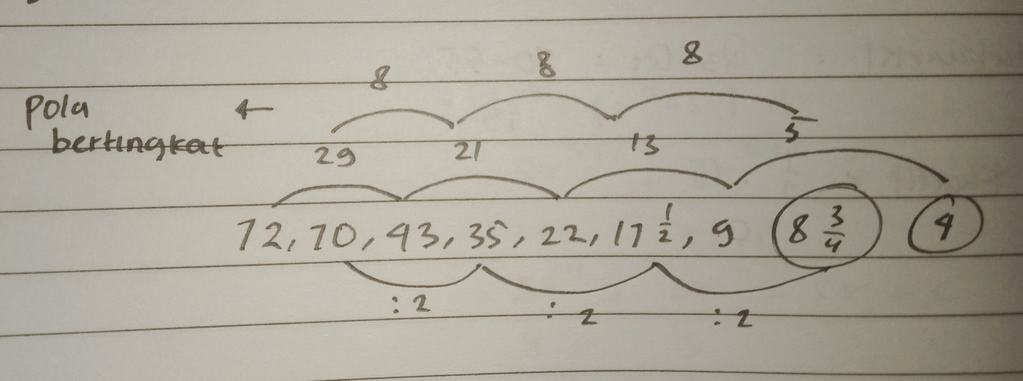 8 8 8
Pola ←
bertingkat
29 21 13 5
72, 70, 43, 35, 22, 17 1/2, 9 8 3/4 4
: 2 : 2 : 2